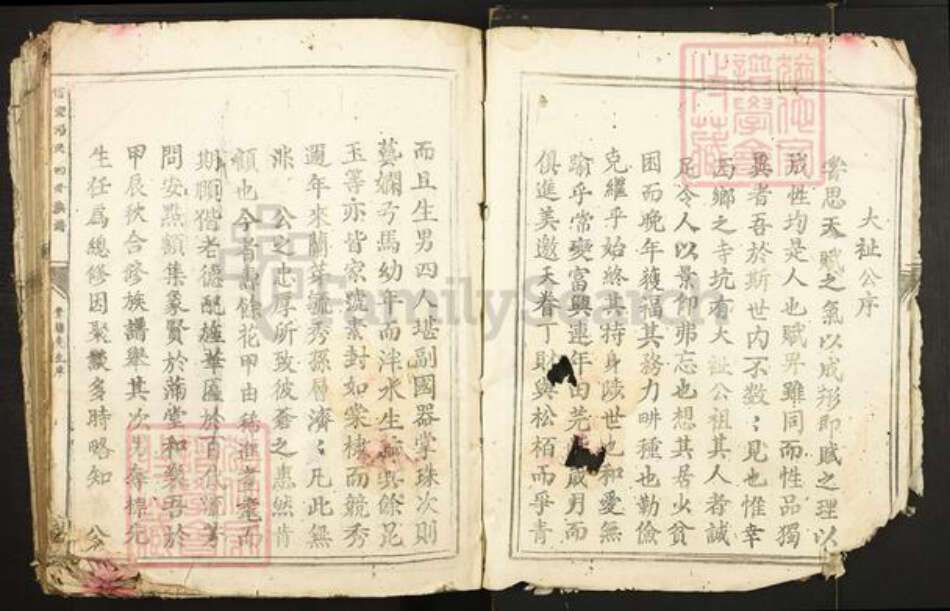 大祉公序
嘗思天賦之氣以成形即賦之理以
成性均是人也賦畀雖同而性品獨
異者吾於斯世内不數:見也惟幸
西鄉之寺坑有大祉公祖其人者誠
足令人以景仰弗忘也想其居少貧
困而晚年獲福其務力畊種也勤儉
克繼乎始終其持身陵世也和愛無
踰乎常變富興連年由 歲月而
俱進美邀天眷丁財與松栢而爭青
而且生男四人堪副國器掌珠次則
藝嫻弓馬幼年而泮水生 與餘昆
玉等亦皆家號素封如棠棣而競秀
邇年來蘭芽毓秀孫層濟:凡此無
非 公之忠厚所致彼蒼之惠然肯
顧也今者壽餘花甲由稀進耄耋而
期頤偕老德配 華 於百
問安點額集衆賢於滿堂和 吾於
甲辰秋合修族譜舉其次男奉標先
生任爲總修因聚 多時略知 公
FamilySearch